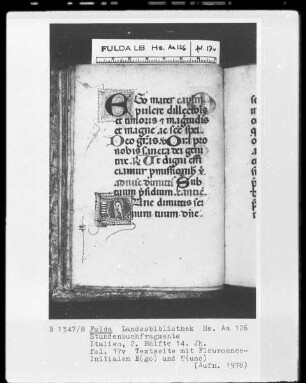 FULDA LB Hs. Aa 126 fol. 17v
Ego mater caritatis
pulcre dillectois
et timoris et magnitudis
et magne ac sce spei.
Deo gras. V. Ora pro
nobis sancta dei geni
trix. R. Ut digni effi
ciamur pmissionib
Sub
tuum psidium.
Nunc dimittis ser
uum tuum dne.
B 1347/8 Fulda Landesbibliothek Hs. Aa 126
Stundenbuchfragmente
Italien, 2. Hälfte 14. Jh.
fol. 17v Textseite mit Fleuronnee-
Initialen E(go) und N(unc)
(Aufn. 1978)